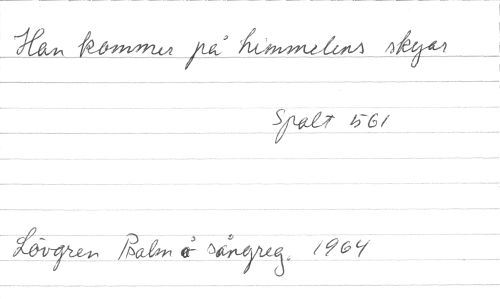 Han kommer på himmelens skyar
Spalt 561
Lövgren Psalm å sångreg. 1964